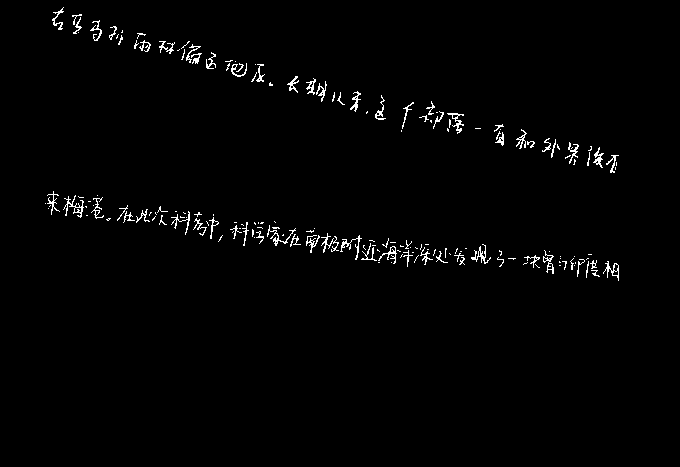 在亚马孙雨林偏远地区。长期以来,这个部落一直和外界没有
来梅港。在此次科考中,科学家在南极附近海洋深处发现了一块曾与印度相